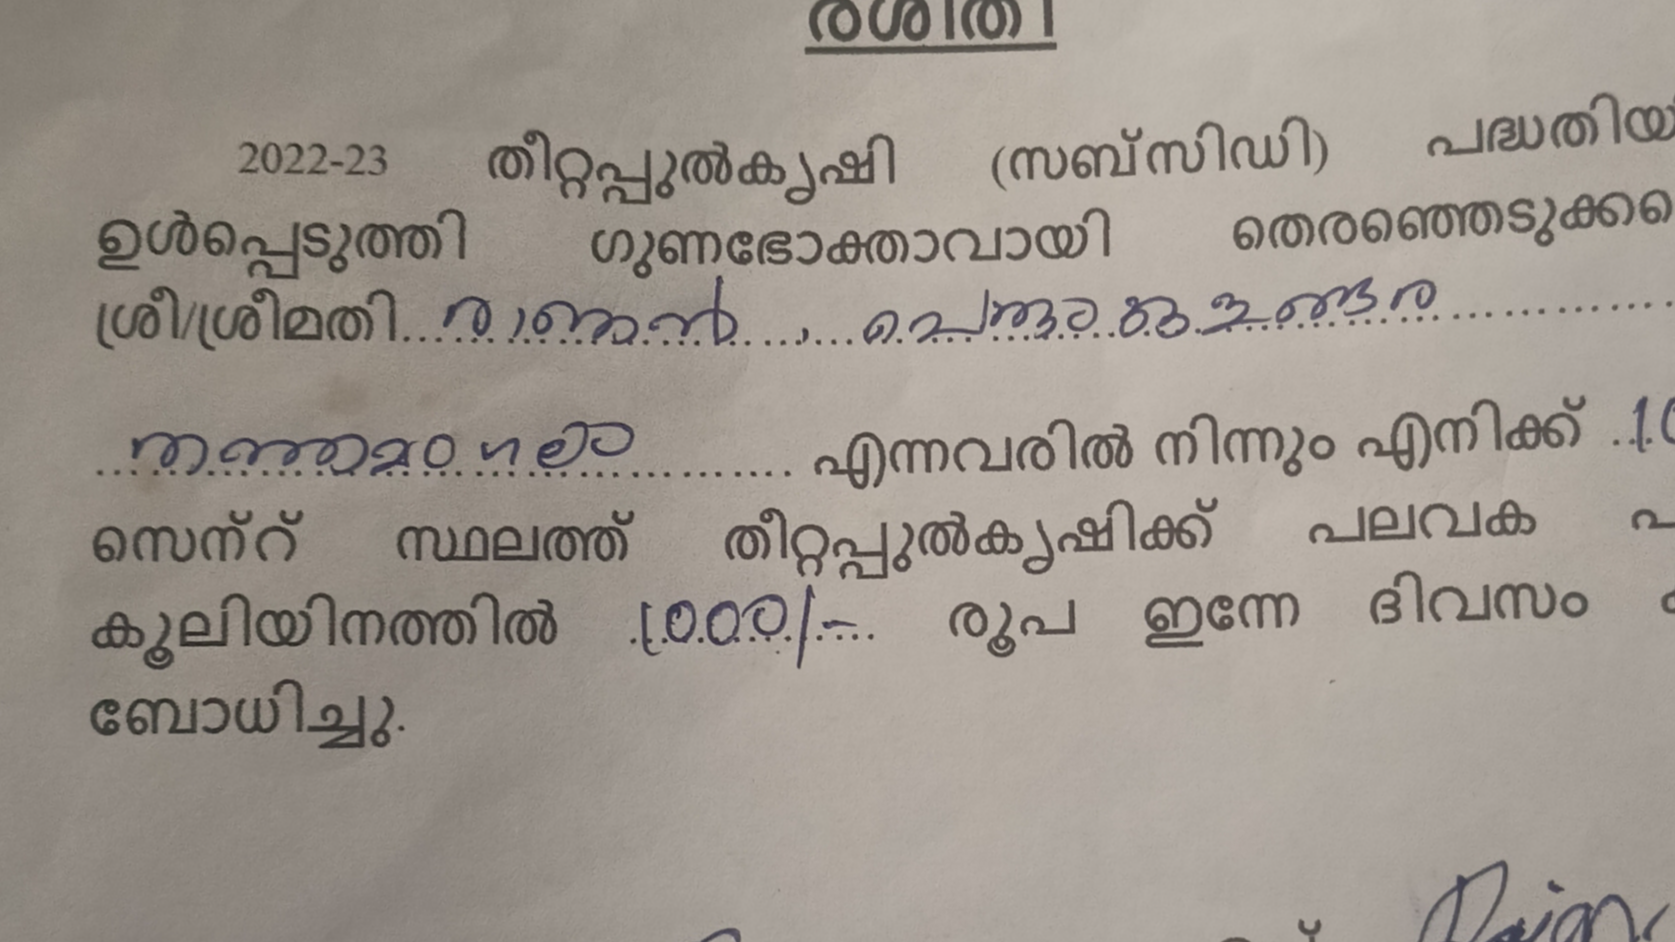 രശീതി
2022-23 തീറ്റപ്പുൽകൃഷി (സബ്സിഡി) പദ്ധതിയി
ഉൾപ്പെടുത്തി ഗുണഭോക്താവായി തെരഞ്ഞെടുക്കപ്പെ
ശ്രീ/ശ്രീമതി രാജൻ
എന്നവരിൽ നിന്നും എനിക്ക് 10
സെന്റ് സ്ഥലത്ത് തീറ്റപ്പുൽകൃഷിക്ക് പലവക പ
കൂലിയിനത്തിൽ 1000/- രൂപ ഇന്നേ ദിവസം
ബോധിച്ചു.